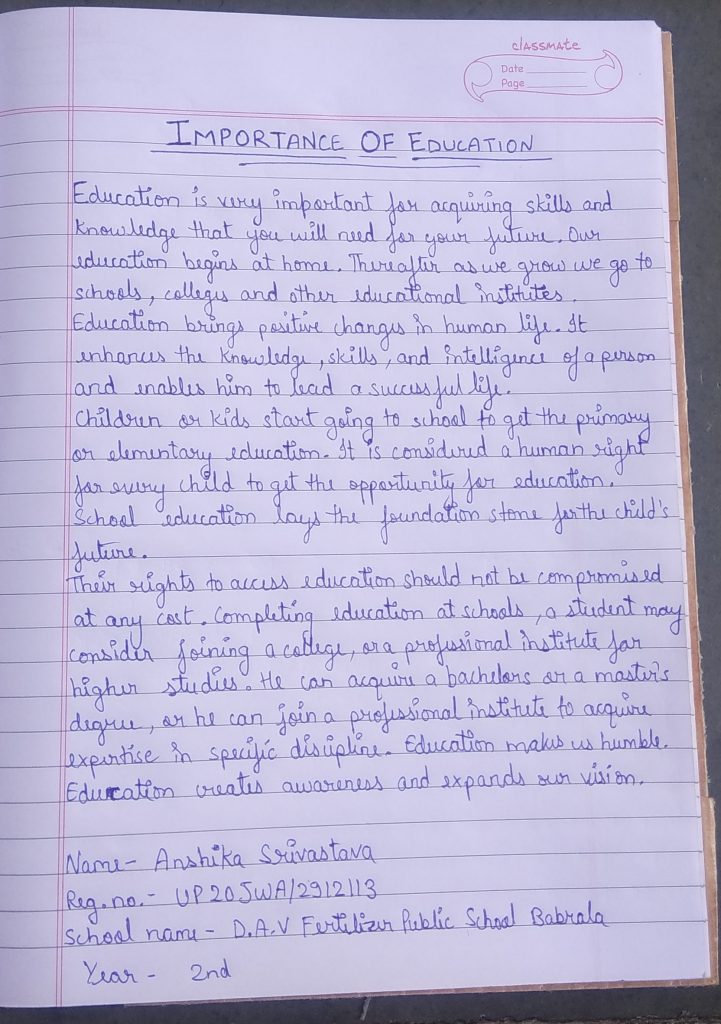 classmate
Date
Page
IMPORTANCE OF EDUCATION
Education is very important for acquiring skills and
knowledge that you will need for your future. Our
education begins at home. Thereafter as we grow we go to
schools, colleges and other educational institutes.
Education brings positive changes in human life. It
enhances the knowledge, skills, and intelligence of a person
and enables him to lead a successful life.
Children or kids start going to school to get the primary
or elementary education. It is considered a human right
for every child to get the opportunity for education.
School education lays the foundation stone for the child's
future.
Their rights to access education should not be compromised
at any cost. Completing education at schools, a student may
consider joining a college, or a professional institute for
higher studies. He can acquire a bachelors or a master's
degree, or he can join a professional institute to acquire
expertise in specific discipline. Education makes us humble.
Education creates awareness and expands our vision.
Name- Anshika Srivastava
Reg. no.- UP20JWA/2912113
School name - D.A.V Fertilizer Public School Babrala
Year - 2nd